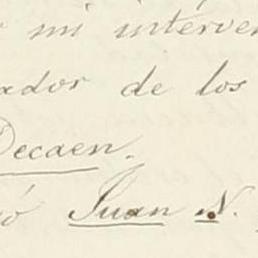 mi interven
ador de los
Decaen.
ó Juan N.